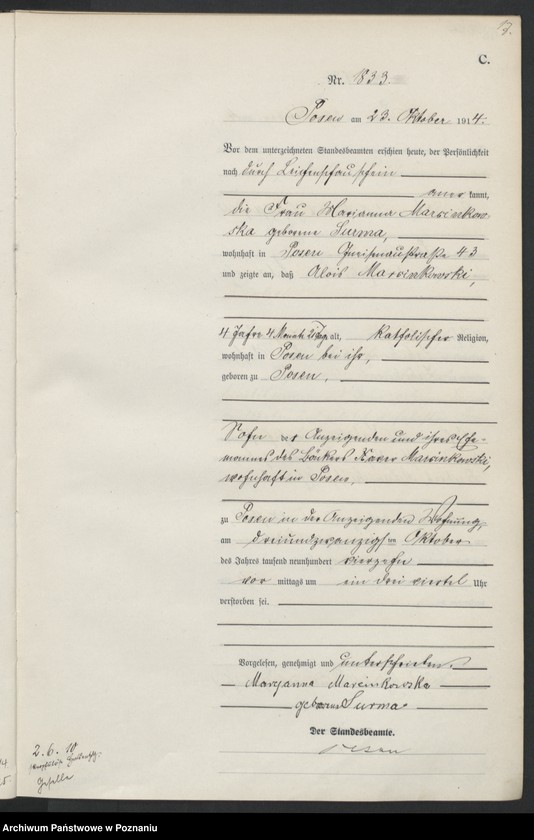 C.
Nr. 1833.
Posen am 23. Oktober 1914.
Vor dem unterzeichneten Standesbeamten erschien heute, der Persönlichkeit
nach durch Leichenschauschein
aner kannt,
die Frau Marianna Marcinkow
ska geborene Surma,
wohnhaft in Posen Gneisenaustraße 43
und zeigte an, daß Alois Marcinkowski,
4 Jahre 4 Monate alt, katholischer Religion,
wohnhaft in Posen bei ihr,
geboren zu Posen,
Sohn der Anzeigenden und ihres Ehe-
mannes des Bäckers Xaver Marcinkowski,
wohnhaft in Posen,
zu Posen in der Anzeigenden Wohnung,
am dreiundzwanzigsten Oktober
des Jahres tausend neunhundert vierzehn
vor mittags um ein drei viertel Uhr
verstorben sei.
Vorgelesen, genehmigt und unterschrieben.
Maryanna Marcinkowska
geborene Surma
Der Standesbeamte.
2. 6. 10
Archiwum Państwowe w Poznaniu